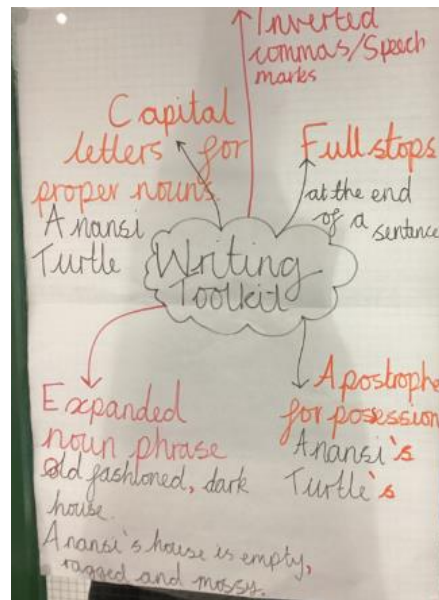 Inverted
commas/Speech
marks
Capital
letters for
proper nouns
Anansi
Turtle
Full stops
at the end
of a sentence
Writing
Toolkit
Expanded
noun phrase
old fashioned, dark
house.
Anansi's house is empty,
ragged and mossy.
Apostrophe
for possession
Anansi's
Turtle's